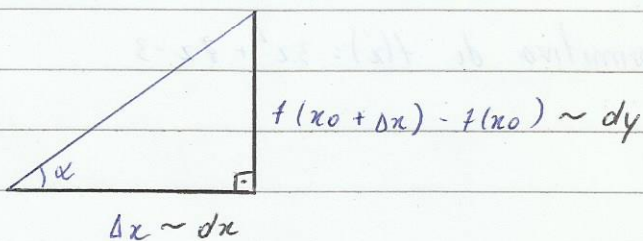 f(x0 + Δx) - f(x0) ~ dy
α
Δx ~ dx